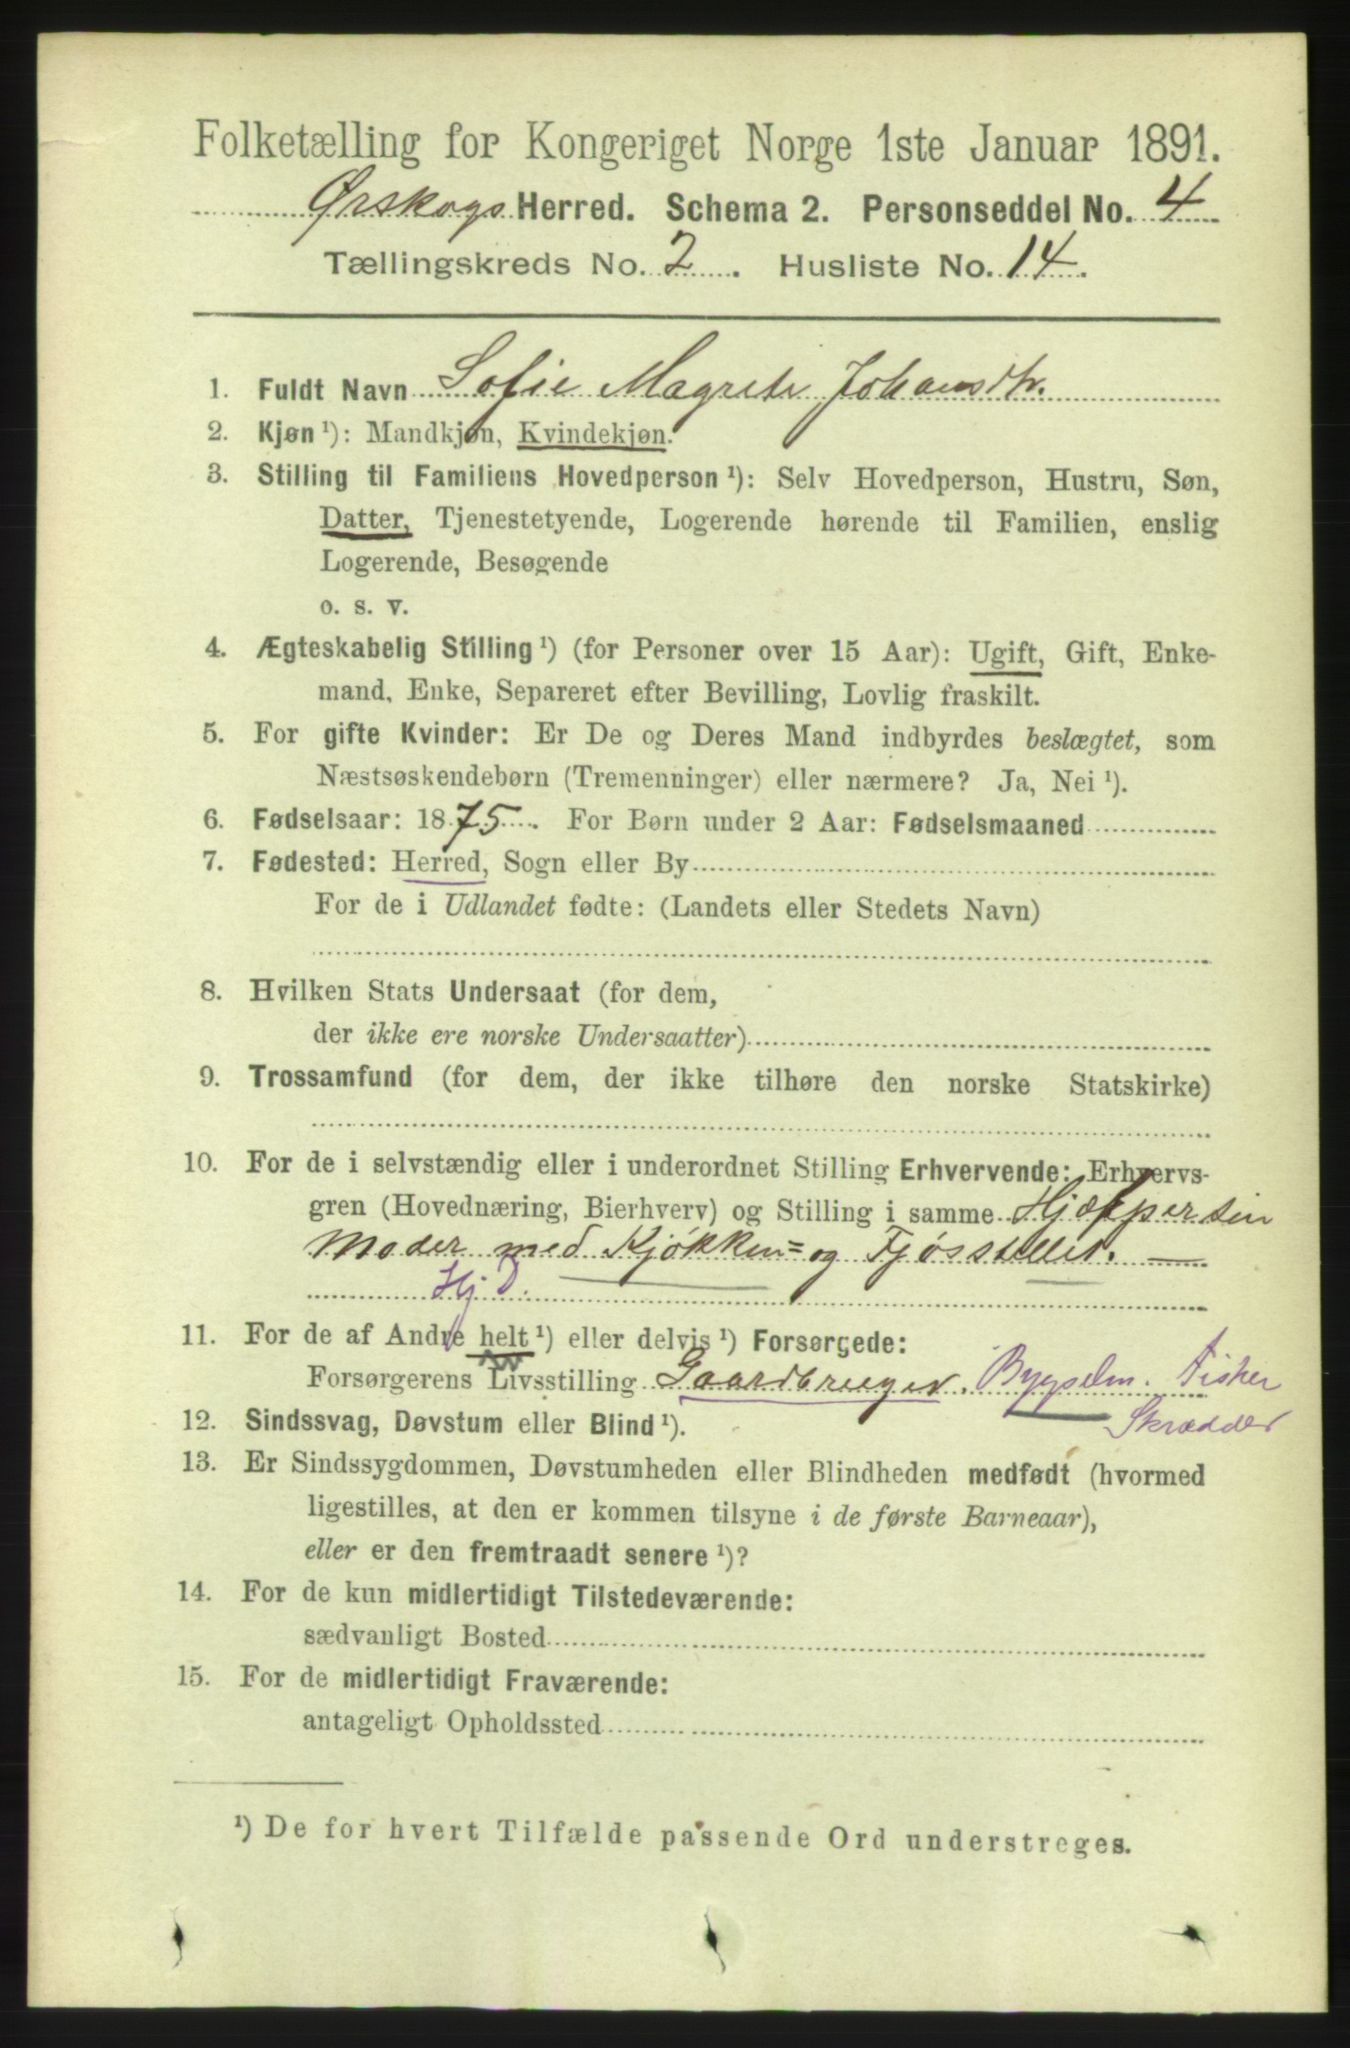 Folketælling for Kongeriget Norge 1ste Januar 1891.
Ørskogs Herred. Schema 2. Personseddel No. 4
Tællingskreds No. 2. Husliste No. 14.
1. Fuldt Navn Sofie Magrete Johansdtr.
2. Kjøn ¹): Mandkjøn, Kvindekjøn.
3. Stilling til Familiens Hovedperson ¹): Selv Hovedperson, Hustru, Søn,
Datter, Tjenestetyende, Logerende hørende til Familien, enslig
Logerende, Besøgende
o. s. v.
4. Ægteskabelig Stilling ¹) (for Personer over 15 Aar): Ugift, Gift, Enke-
mand, Enke, Separeret efter Bevilling, Lovlig fraskilt.
5. For gifte Kvinder: Er De og Deres Mand indbyrdes beslægtet, som
Næstsøskendebørn (Tremenninger) eller nærmere? Ja, Nei ¹).
6. Fødselsaar: 1875. For Børn under 2 Aar: Fødselsmaaned
7. Fødested: Herred, Sogn eller By
For de i Udlandet fødte: (Landets eller Stedets Navn)
8. Hvilken Stats Undersaat (for dem,
der ikke ere norske Undersaatter)
9. Trossamfund (for dem, der ikke tilhøre den norske Statskirke)
10. For de i selvstændig eller i underordnet Stilling Erhvervende: Erhvervs-
gren (Hovednæring, Bierhverv) og Stilling i samme Hjælper sin
Moder med Kjøkken= og Fjøsstellet.
Hj D.
11. For de af Andre helt ¹) eller delvis ¹) Forsørgede:
Forsørgerens Livsstilling Gaardbruger. Bygselm. Fisker
Skrædder
12. Sindssvag, Døvstum eller Blind ¹).
13. Er Sindssygdommen, Døvstumheden eller Blindheden medfødt (hvormed
ligestilles, at den er kommen tilsyne i de første Barneaar),
eller er den fremtraadt senere ¹)?
14. For de kun midlertidigt Tilstedeværende:
sædvanligt Bosted
15. For de midlertidigt Fraværende:
antageligt Opholdssted
¹) De for hvert Tilfælde passende Ord understreges.